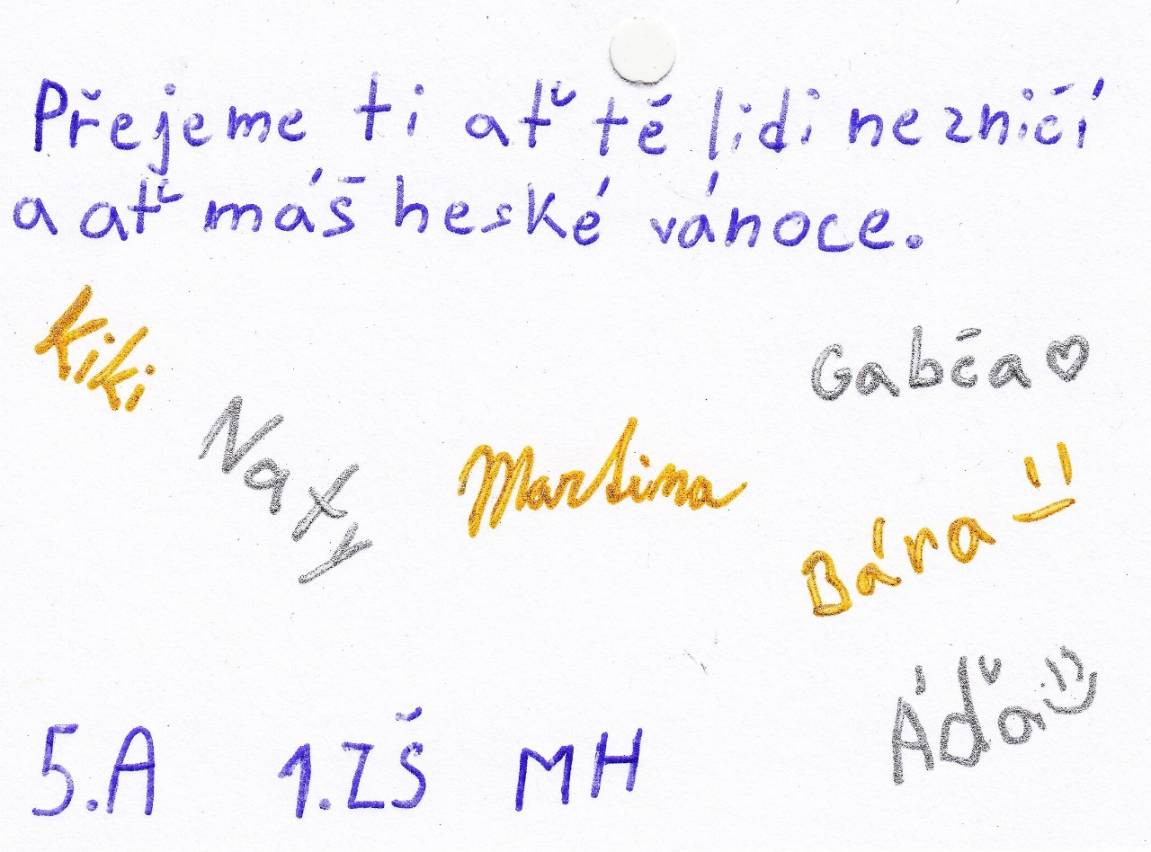 Přejeme ti ať tě lidi nezničí
a ať máš heské vánoce.
Kiki
Naty
Martina
Gabča ♡
Bára
Áďa
5.A 1.ZŠ MH